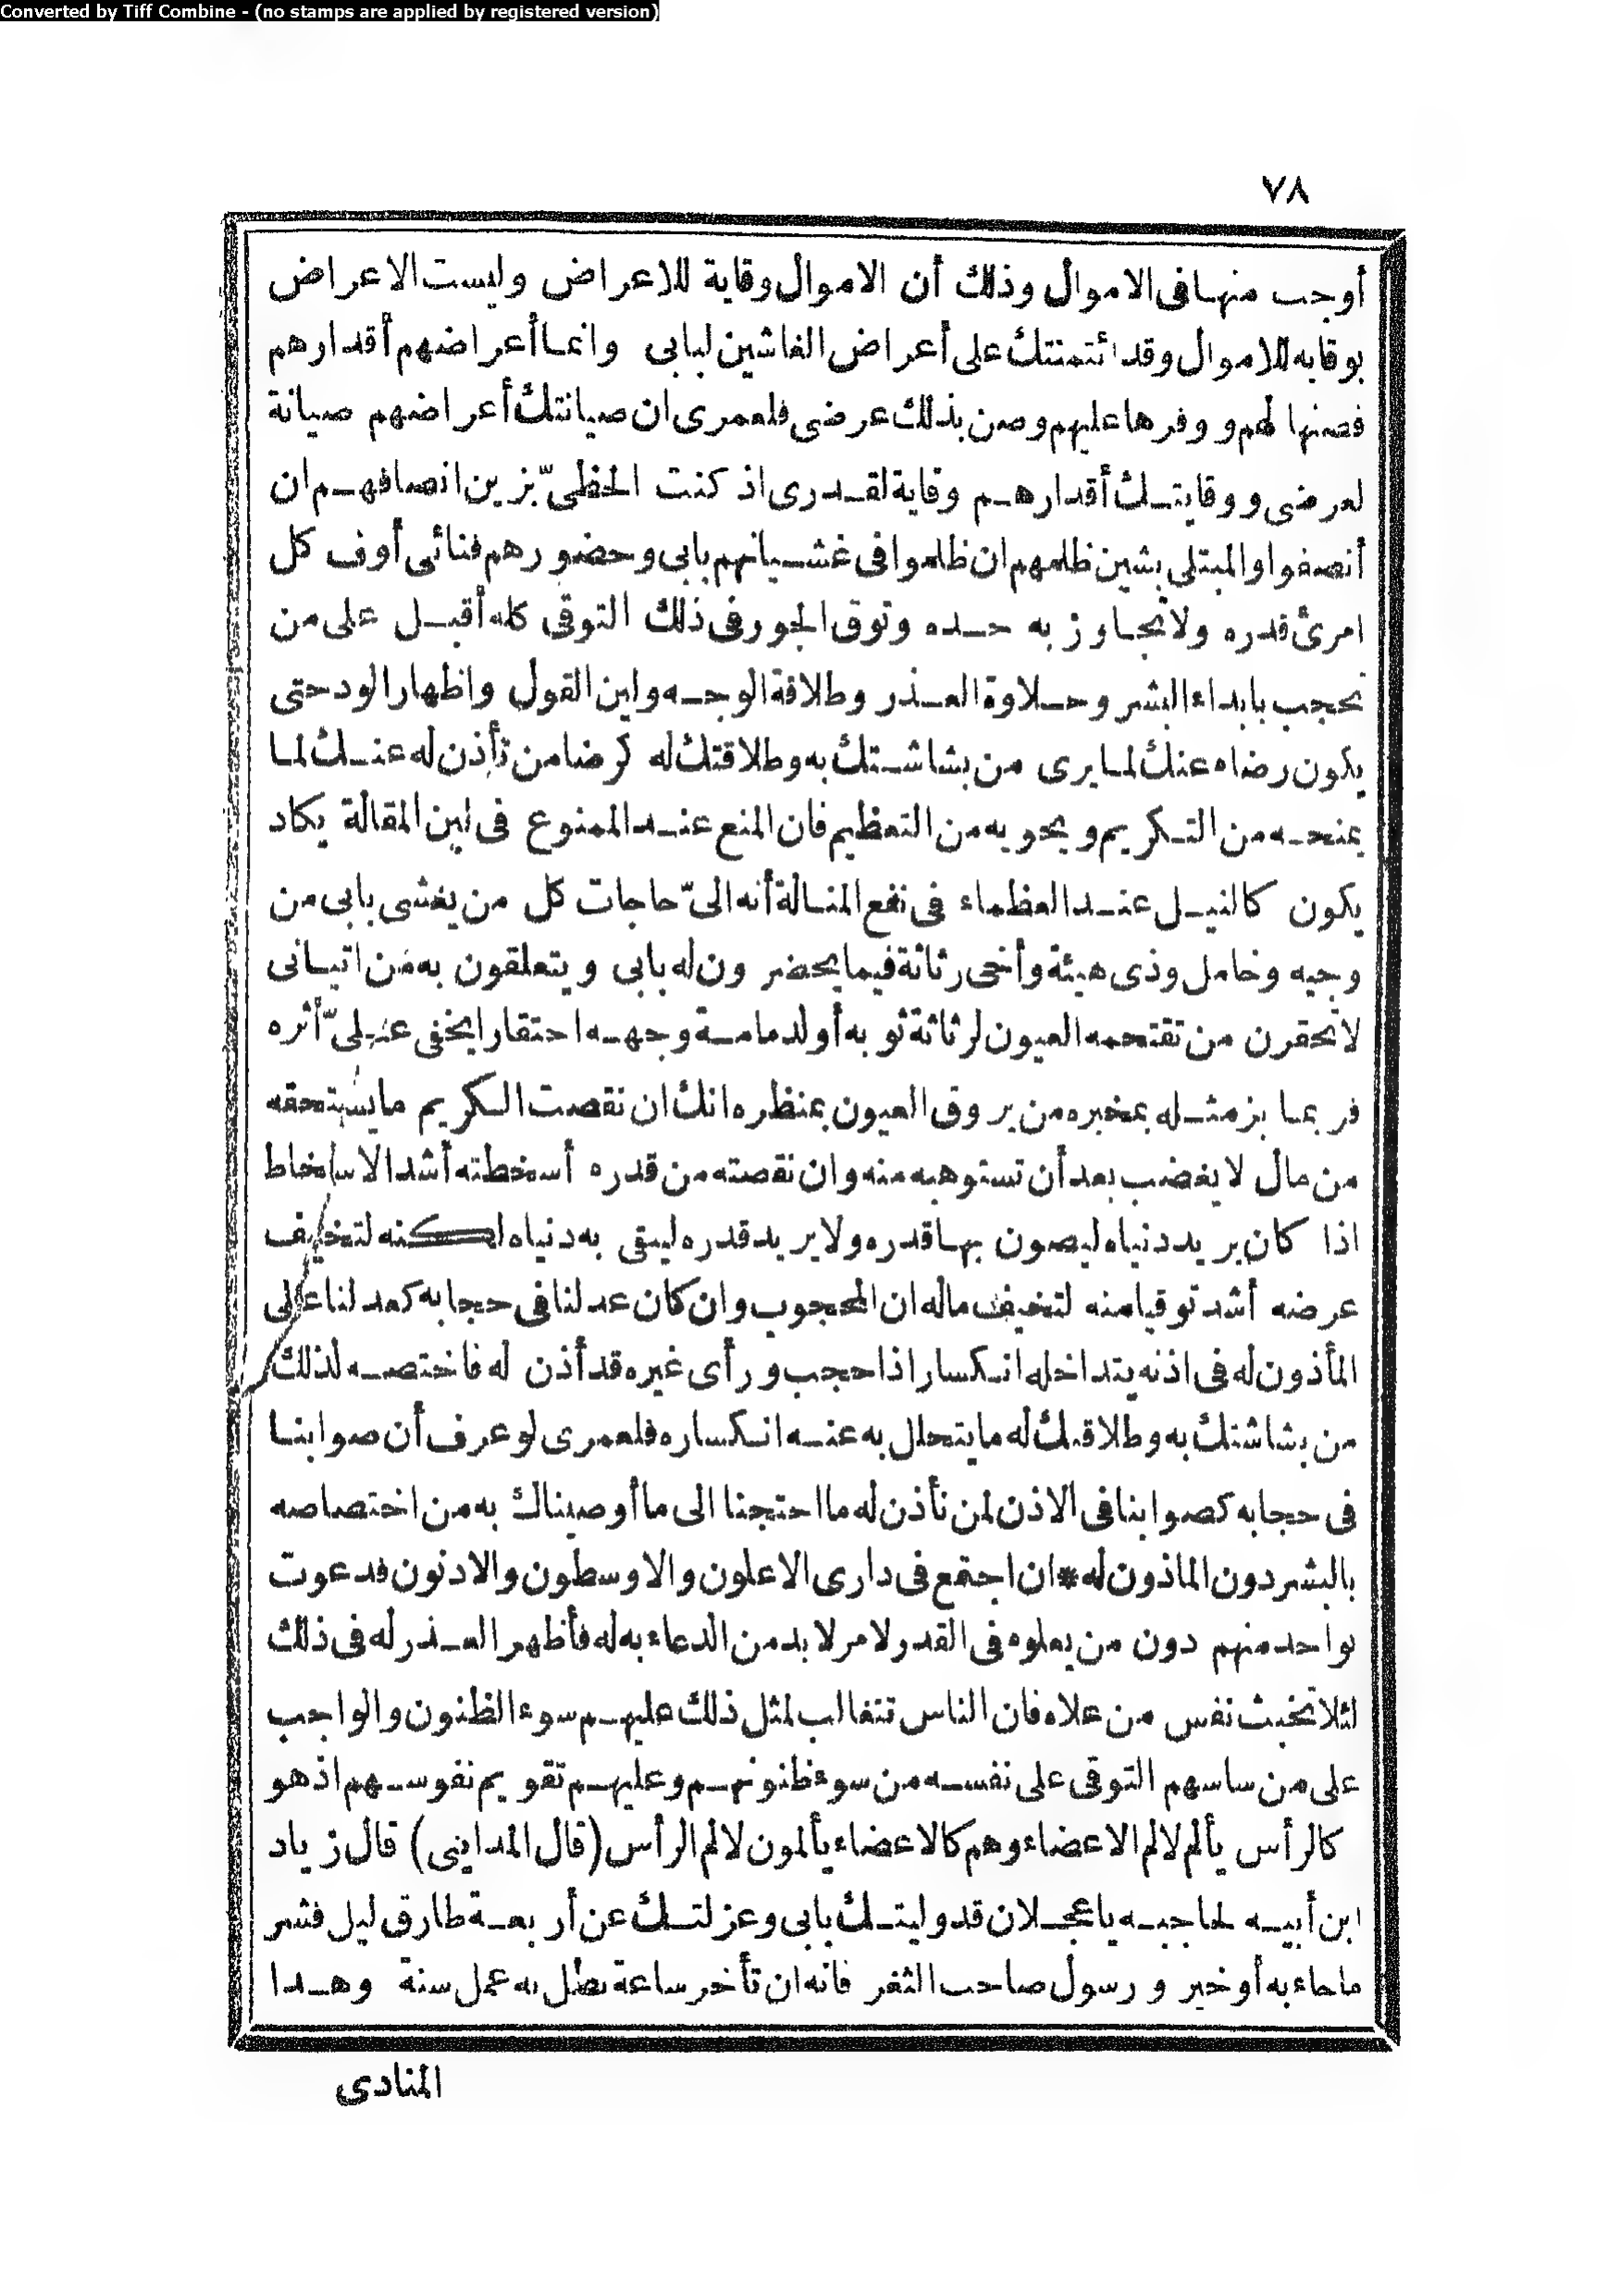 Converted by Tiff Combine - (no stamps are applied by registered version)
٧٨
أوجب منها فى الاموال وذلك أن الاموال وقاية للاعراض وليست الاعراض
بوقاية للاموال وقد ائتمنتك على أعراض الغاشين لبابى وانما أعراضهم أقدارهم
فصنها لهم ووفرها عليهم وصن بذلك عرضى فلعمرى ان صيانتك أعراضهم صيانة
لعرضى ووقايتك أقدارهم وقاية لقدرى اذ كنت الحظىّ بزين انصافهم ان
أنصفوا والمبتلى بشين ظلمهم ان ظلموا فى غشيانهم بابى وحضورهم فنائى أوف كل
امرئ قدره ولا تجاوز به حده وتوق الجور فى ذلك التوقى كله أقبل على من
تحجب بابداء البشر وحلاوة العذر وطلاقة الوجه ولين القول واظهار الود حتى
يكون رضاه عنك لما يرى من بشاشتك به وطلاقتك له كرضا من تأذن له عنك لما
يمنحه من التكريم ويحويه من التعظيم فان المنع عند الممنوع فى لين المقالة يكاد
يكون كالنيل عند العظماء فى نفع المنالة أنه الىّ حاجات كل من يغشى بابى من
وجيه وخامل وذى هيئة وأخى رثاثة فيما يحضرون له بابى ويتعلقون به من اتيانى
لا تحقرن من تقتحمه العيون لرثاثة ثوبه أو لدمامة وجهه احتقارا يخفى علىّ أثره
فربما بز مثله بمخبره من يروق العيون بمنظره انك ان نقصت الكريم ما يستحقه
من مال لا يغضب بعد أن تستوهبه منه وان نقصته من قدره أسخطته أشد الاسخاط
اذا كان يريد دنياه ليصون بها قدره ولا يريد قدره ليبقى به دنياه لكنه لتخيف
عرضه أشد توقيا منه لتخيف ماله ان المحجوب وان كان عدلنا فى حجابه كعدلنا على
المأذون له فى اذنه يتداخله انكسار اذا حجب ورأى غيره قد أذن له فاختصه لذلك
من بشاشتك به وطلاقتك له ما يتحلل به عنه انكساره فلعمرى لو عرف أن صوابنا
فى حجابه كصوابنا فى الاذن لمن نأذن له ما احتجنا الى ما أوصيناك به من اختصاصه
بالبشر دون الماذون له * ان اجتمع فى دارى الاعلون والاوسطون والادنون فدعوت
بواحد منهم دون من يعلوه فى القدر لامر لا بد من الدعاء به له فأظهر العذر له فى ذلك
لئلا تخبث نفس من علاه فان الناس تتغالب لمثل ذلك عليهم سوء الظنون والواجب
على من ساسهم التوقى على نفسه من سوء ظنونهم وعليهم تقويم نفوسهم اذ هو
كالرأس يألم لالم الاعضاء وهم كالاعضاء يألمون لالم الرأس (قال المداينى) قال زياد
ابن أبيه لحاجبه يا عجلان قد وليتك بابى وعزلتك عن أربعة طارق ليل فشر
ما جاء به أو خير ورسول صاحب الثغر فانه ان تأخر ساعة بطل به عمل سنة وهذا
المنادى